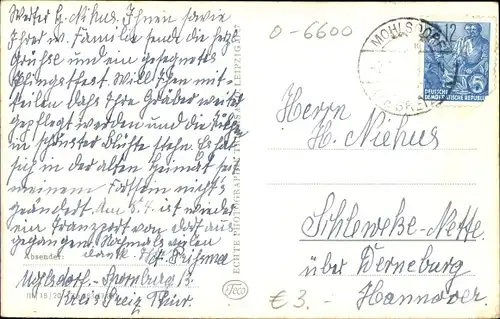 Werter H. Nihus, Ihnen sowie
Ihrer w. Familie sende die herzl.
Grüße und ein gesegnetes
Pfingstfest. Will Ihnen mit-
teilen daß Ihre Gräber weiter
gepflegt werden und die
in schönster Blüte stehn. Es hat
sich in der alten Heimat seit
meinem Fortsein nichts
geändert. Am 8.4. ist wieder
ein Transport von dort aus
gegangen. Nochmals vielen
Absender: dank.
Mohlsdorf-
Kreis Greiz Thür.
ECHTE PHOTOGRAPHIE
LEIPZIG
Seco
0-6600
MOHLSDORF
12
DEUTSCHE
DEMOKRATISCHE REPUBLIK
5
Herrn
H. Niehus
Schleweke-Nette
über Derneburg
Hannover
€ 3.-